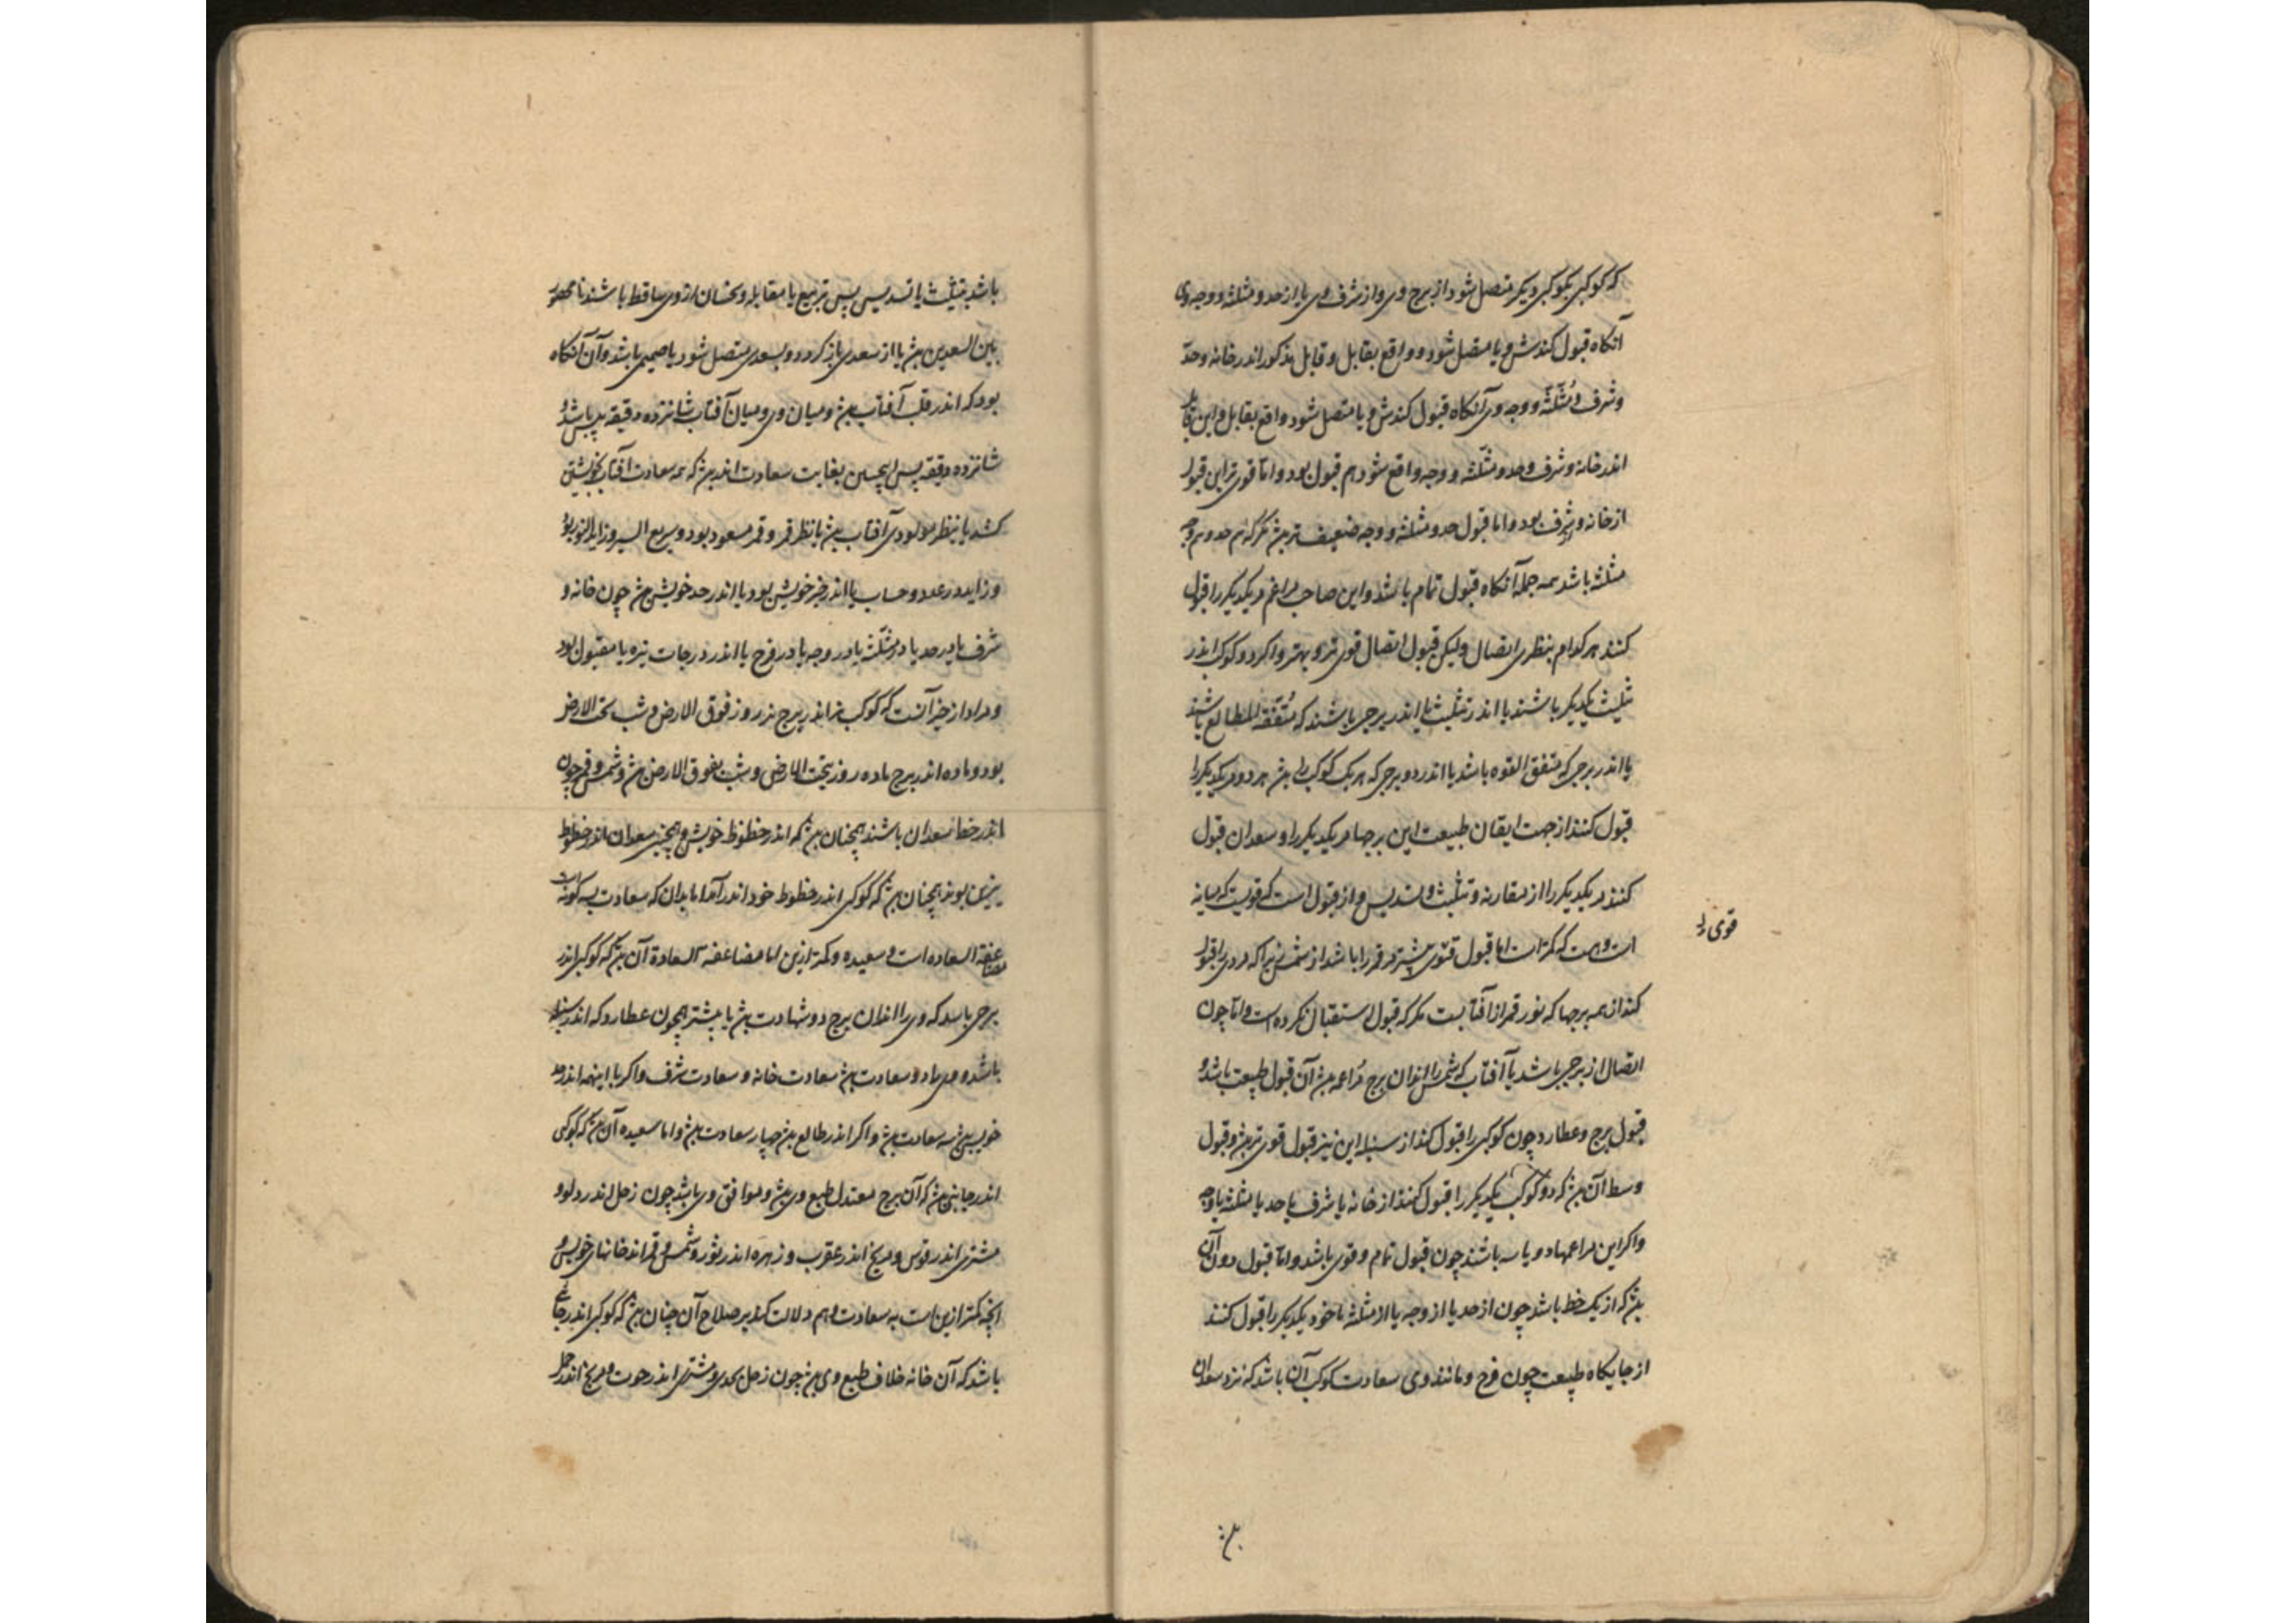 که کوکبی بکوکبی دیگر متصل شود از برج وی و از شرف وی یا از حد و مثلثه و وجه وی
آنکاه قبول کندش و یا متصل شود و واقع بقابل و قابل مذکور اندر خانه وحد
وشرف و مثلثه و وجه وی آنکاه قبول کندش و یا متصل شود واقع بقابل و این قابل
اندر خانه و شرف وحد و مثلثه و وجه واقع شود هم قبول بود و اما قوی تر این قبول
از خانه و شرف بود و اما قبول حد و مثلثه و وجه ضعیف تر بش مکر که هم حد و هم وجه
مثلثه باشد همه جمله آنکاه قبول تمام باشد و این صاحب مراغم و یکدیکر را قبول
کنند هر کدام بنظری اتصال ولیکن قبول اتصال قوی تر و بهتر و اکر دو کوکب اندر
تثلیث یکدیکر باشند یا اندر تثلیث یا اندر برجی باشند که متفقة المطالع باشند
یا اندر برجی که متفق القوه باشد یا اندر دو برجی که هر یک کوکب را بش هر دو یکدیکر را
قبول کنند از جهت ایقان طبیعت این برجها مر یکدیکر را و سعدان قبول
کنند مر یکدیکر را از مقارنه و تثلیث و تسدیس و از قبول است که قویست که میانه
است و هست که کمتر است اما قبول قوی بیشتر مر قمر را باشد از شمس زیرا که مر وی را قبول
قوی را
کند از همه برجها که نور قمر از آفتابست مکر که قبول استقبال نکرده است و اما چون
اتصال از برجی باشد با آفتاب که شمس را اندران برج مزاعمه بش آن قبول طبیعت باشد و
قبول برج و عطارد چون کوکبی را قبول کند از سنبله این نیز قبول قوی تر بش و قبول
وسط آن بش که دو کوکب یکدیکر را قبول کنند از خانه یا شرف یا حد یا مثلثه یا وجه
و اکر این مزاعمها دو یا سه باشند چون قبول تمام و قوی باشد و اما قبول دون آن
بش که از یک خط باشد چون از حد یا از وجه یا از مثلثه تا خود یکدیکر را قبول کنند
از جایکاه طبیعت چون فرح و مانند وی سعادت کوکب آن باشد که نزد سعدان
باشد بتثلیث یا تسدیس پس تربیع یا مقابله و نحسان از وی ساقط باشند تا محصور
بین السعدین بش یا از سعدی باز کردد و بسعدی متصل شود یا صمیمی باشد و آن آنکاه
بود که اندر قلب آفتاب بش و میان وی و میان آفتاب شانزده دقیقه
شانزده دقیقه پس همچنین بغایت سعادت اندر بش که همه سعادت آفتاب بخویشتن
کشد یا بنظر مولودی آفتاب بش یا نظر قمر و قمر مسعود بود و سریع السیر و زاید النور بود
و زاید در عدد و حساب یا اندر حیز خویش بود یا اندر حد خویش بش چون خانه و
شرف یا در حد یا در مثلثه یا در وجه یا در فرح یا اندر درجات نیره یا مقبول بود
و مراد از حیز آنست که کوکب نر اندر برج نر روز فوق الارض و شب تحت الارض
بود و ماده اندر برج ماده روز تحت الارض و شب بفوق الارض بش و شمس و قمر چون
اندر خط سعدان باشند همچنان بش که اندر حظوظ خویش و همچنین سعدان اندر حظوظ
نیرین بوند همچنان بش که کوکبی اندر حظوظ خود اندر آمد اما بدان که سعادت بسه کونه است
مضاعفة السعاده است و سعیده و کمتر ازین اما مضاعفه السعادة آن بش که کوکبی اندر
برجی باشد که وی را اندران برج دو شهادت بش یا بیشتر همچون عطارد که اندر سنبله
باشد و وی را دو سعادت بش سعادت خانه و سعادت شرف و اکر با اینهمه اندر حد
خویش بش سه سعادت بش و اکر اندر طالع بش چهار سعادت بش و اما سعیده آن بش که کوکبی
اندر جایی بش که آن برج معتدل طبع وی بش و موافق وی باشد چون زحل اندر دلو و
مشتری اندر قوس و مریخ اندر عقرب و زهره اندر ثور و شمس و قمر اندر خانهای خویش و
انچه کمتر ازین است به سعادت و هم دلالت کند بر صلاح آن چنان بش که کوکبی اندر جای
باشد که آن خانه خلاف طبع وی بش چون زحل بجدی و مشتری اندر حوت و مریخ اندر حمل